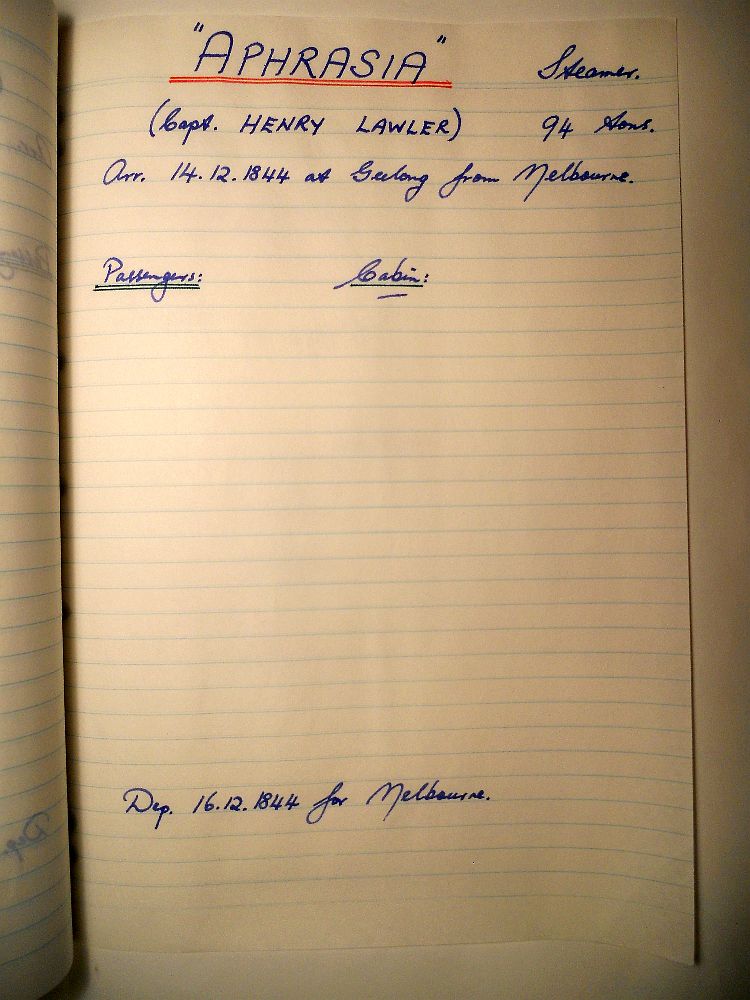 "APHRASIA" Steamer.
(Capt. HENRY LAWLER) 94 tons.
Arr. 14.12.1844 at Geelong from Melbourne.
Passengers: Cabin:
Dep. 16.12.1844 for Melbourne.
Dep.